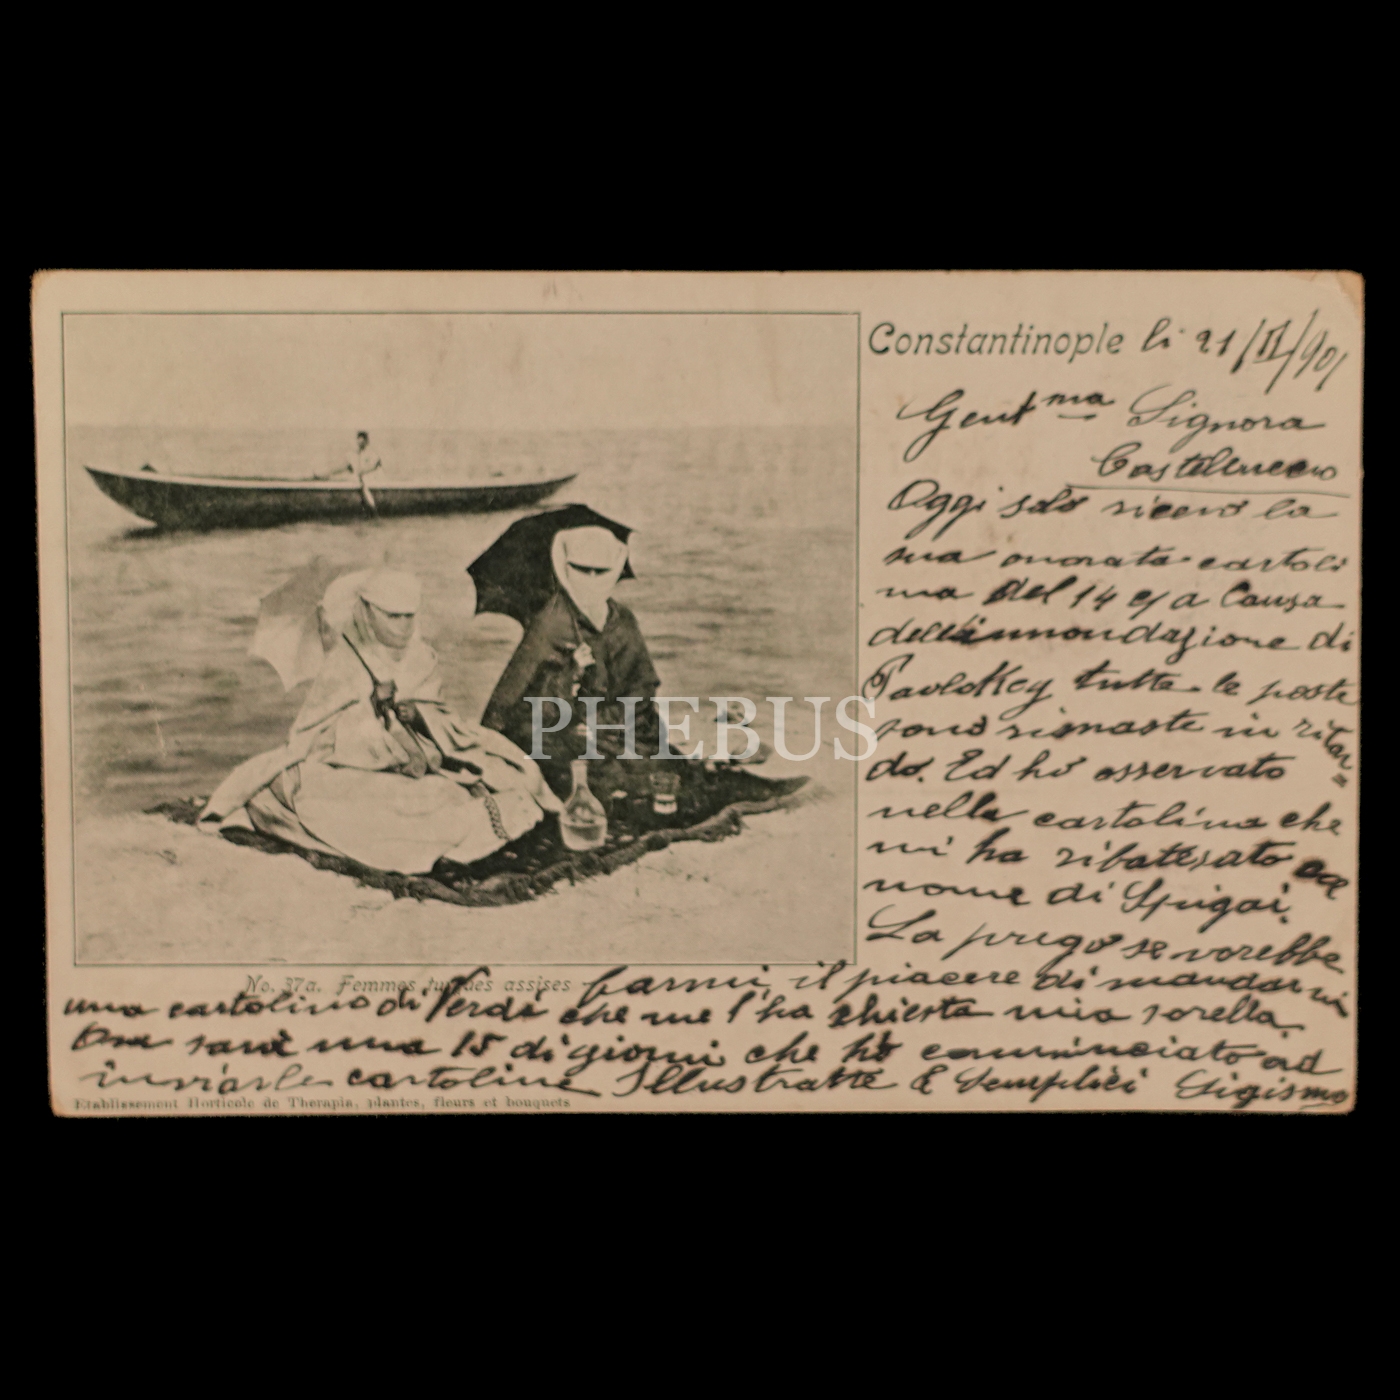 Constantinople li 21/II/901
Gent.ma Signora
Oggi solo ricevo la
sua onorata cartoli
na del 14 c/ a Causa
dell'innondazione di
Pavlokey tutte le poste
sono rimaste in ritar=
do. Ed ho osservato
nella cartolina che
mi ha ribatesato
nome di Spigai.
La prego se vorebbe
farmi il piacere di mandarmi
una cartolina di Verdi che me l'ha chiesta mia sorella.
Ora sarà una 15 di giorni che ho cominciato ad
inviarle cartoline Illustratte E Semplici Sigismo
No. 37a. Femmes turques assises
Etablissement Horticole de Therapia, plantes, fleurs et bouquets
PHEBUS